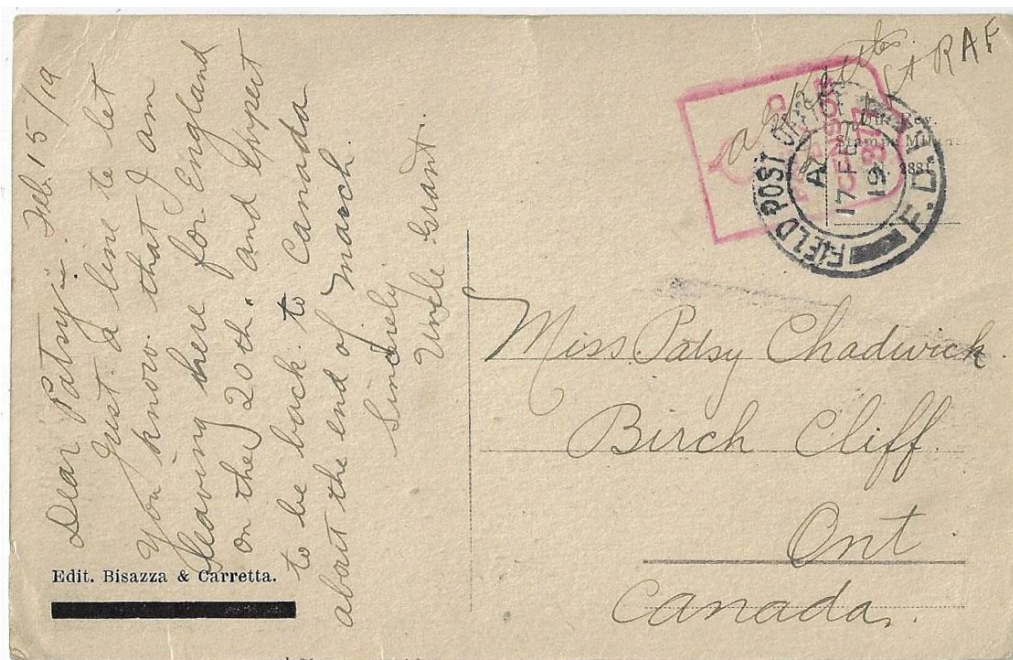 Feb. 15/19
Dear Patsy:
Just a line to let
you know that I am
leaving here for England
on the 20th. and Expect
to be back to Canada
about the end of march.
Sincerely
Uncle Grant.
Edit. Bisazza & Carretta.
Lt RAF
FIELD POST OFFICE
F.D.
A
17 FE
19
Miss Patsy Chadwick
Birch Cliff.
Ont.
Canada.